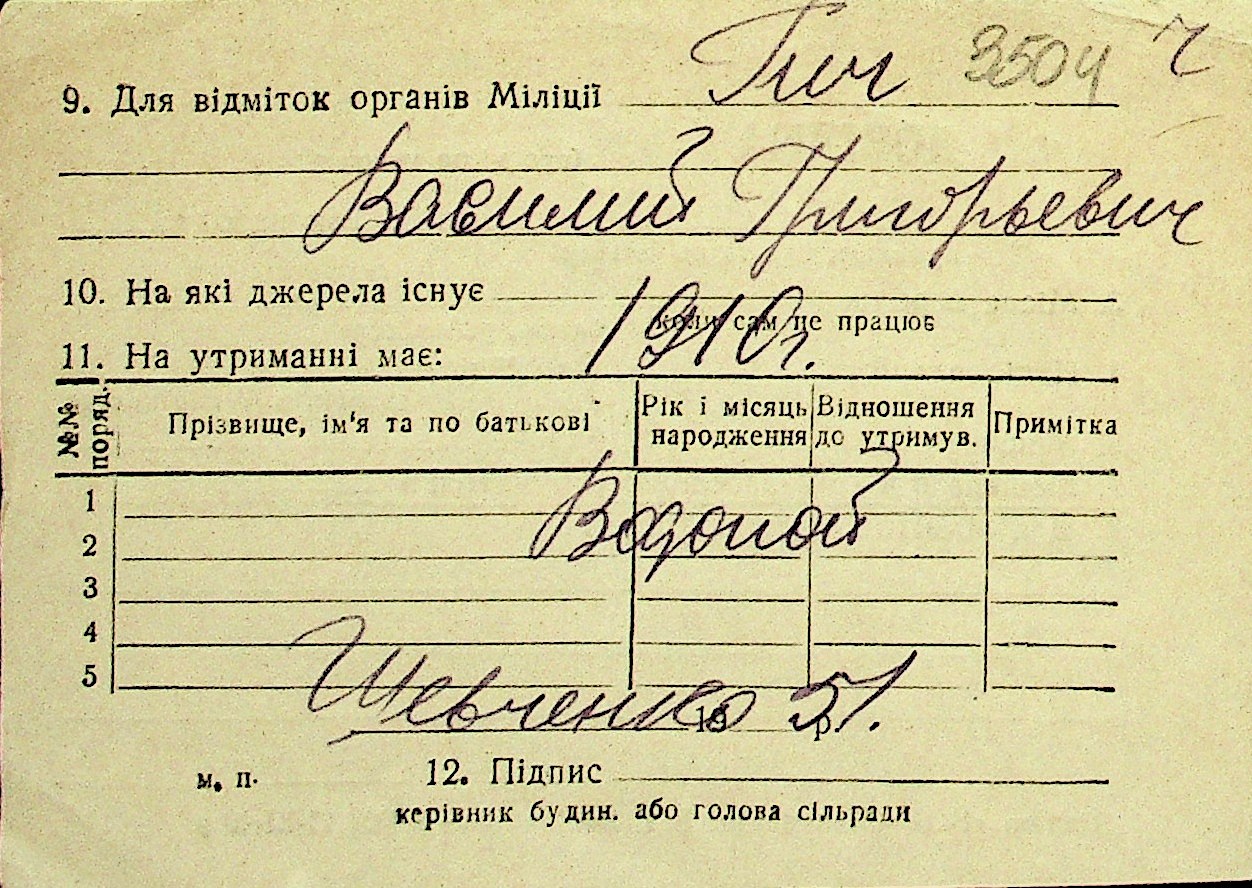 3504
9. Для відміток органів Міліції
Василий Григорьевич
10. На які джерела існує
коли сам не працює
1910 г.
11. На утриманні має:
№№ поряд. Прізвище, ім'я та по батькові Рік і місяць народження Відношення до утримув. Примітка
1
Водопой
2
3
4
5
Шевченко 51.
19 р.
м. п. 12. Підпис
керівник будин. або голова сільради